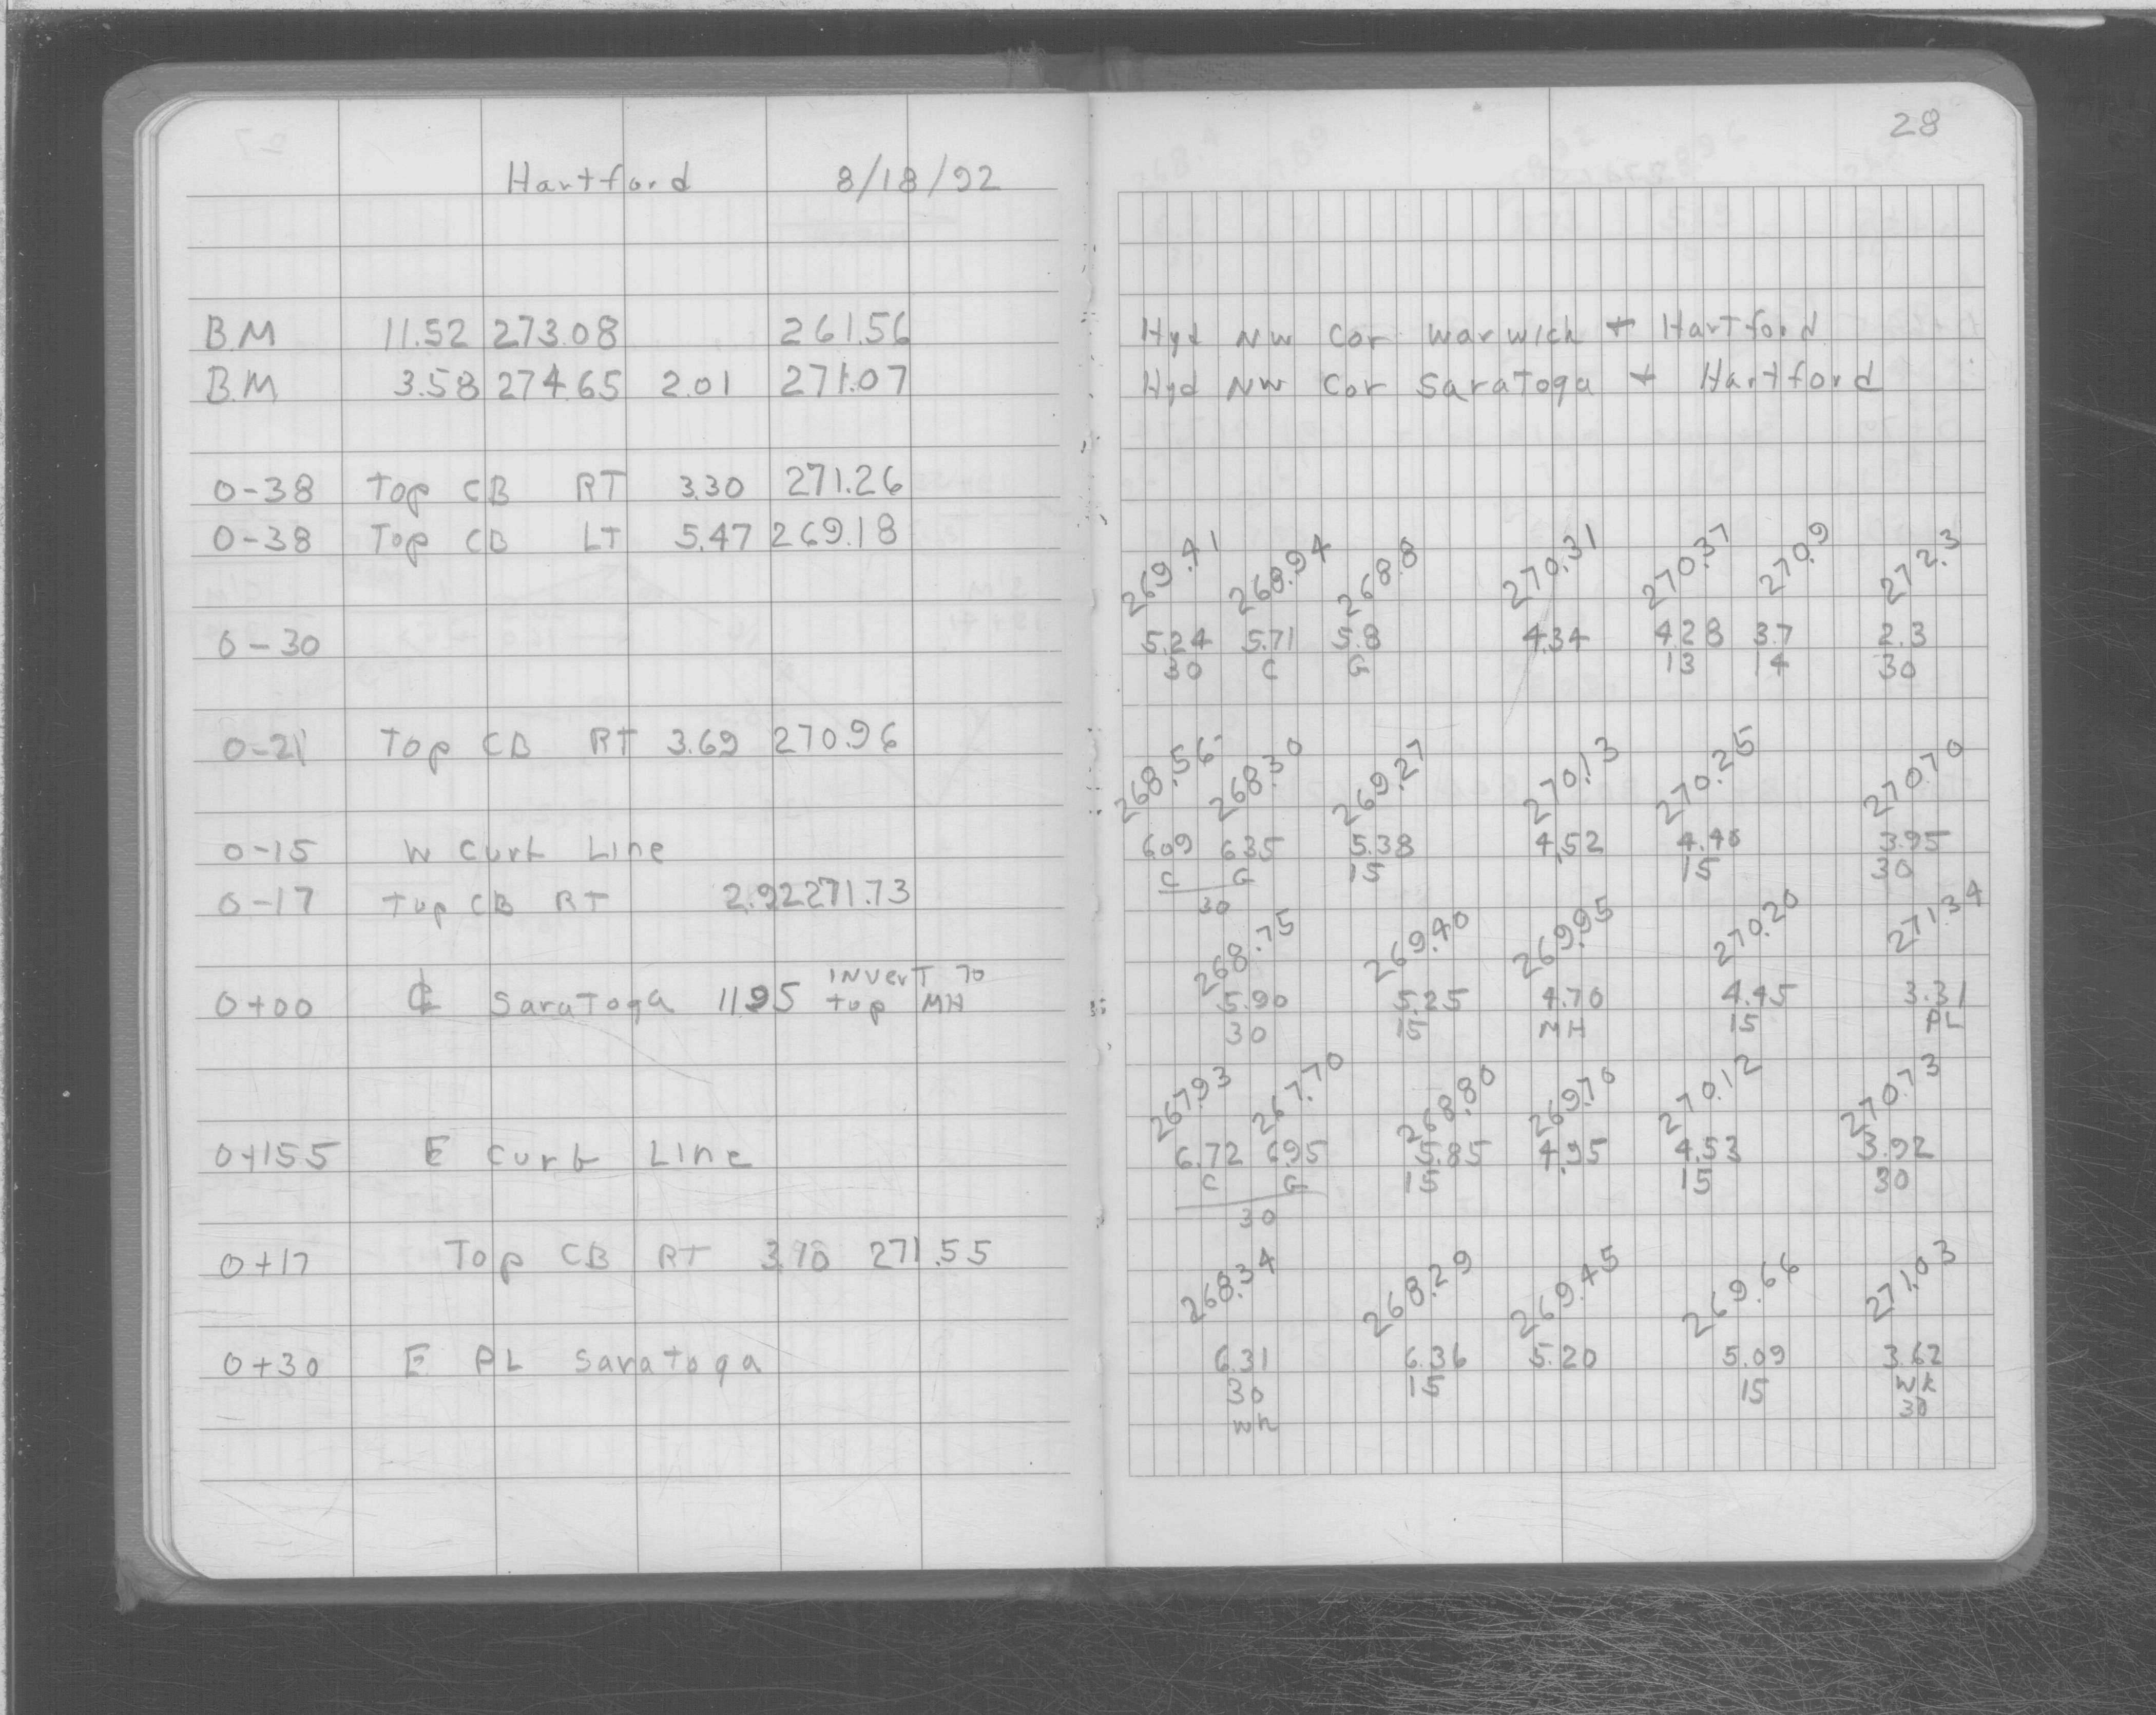 28
Hartford 8/18/92
BM 11.52 273.08 261.56
BM 3.58 274.65 2.01 271.07
0-38 Top CB RT 3.30 271.26
0-38 Top CB LT 5.47 269.18
0-30
0-21 Top CB RT 3.69 270.96
0-15 W Curb Line
0-17 Top CB RT 2.92 271.73
INVERT TO
0+00 ℄ Saratoga 11.95 top MH
0+15.5 E Curb Line
0+17 Top CB RT 3.10 271.55
0+30 E PL Saratoga
Hyd NW Cor Warwich + Hartford
Hyd NW Cor Saratoga + Hartford
269.41 268.94 268.8 270.31 270.37 270.9 272.3
5.24 5.71 5.8 4.34 4.28 3.7 2.3
30 C G 13 14 30
268.56 268.30 269.27 270.13 270.25 270.70
6.09 6.35 5.38 4.52 4.40 3.95
C G 15 15 30
30
268.75 269.40 269.95 270.20 271.34
5.90 5.25 4.70 4.45 3.31
30 15 MH 15 PL
267.93 267.70 268.80 269.70 270.12 270.73
6.72 6.95 5.85 4.95 4.53 3.92
C G 15 15 30
30
268.34 268.29 269.45 269.66 271.03
6.31 6.36 5.20 5.09 3.62
30 15 15 WK
WK 30